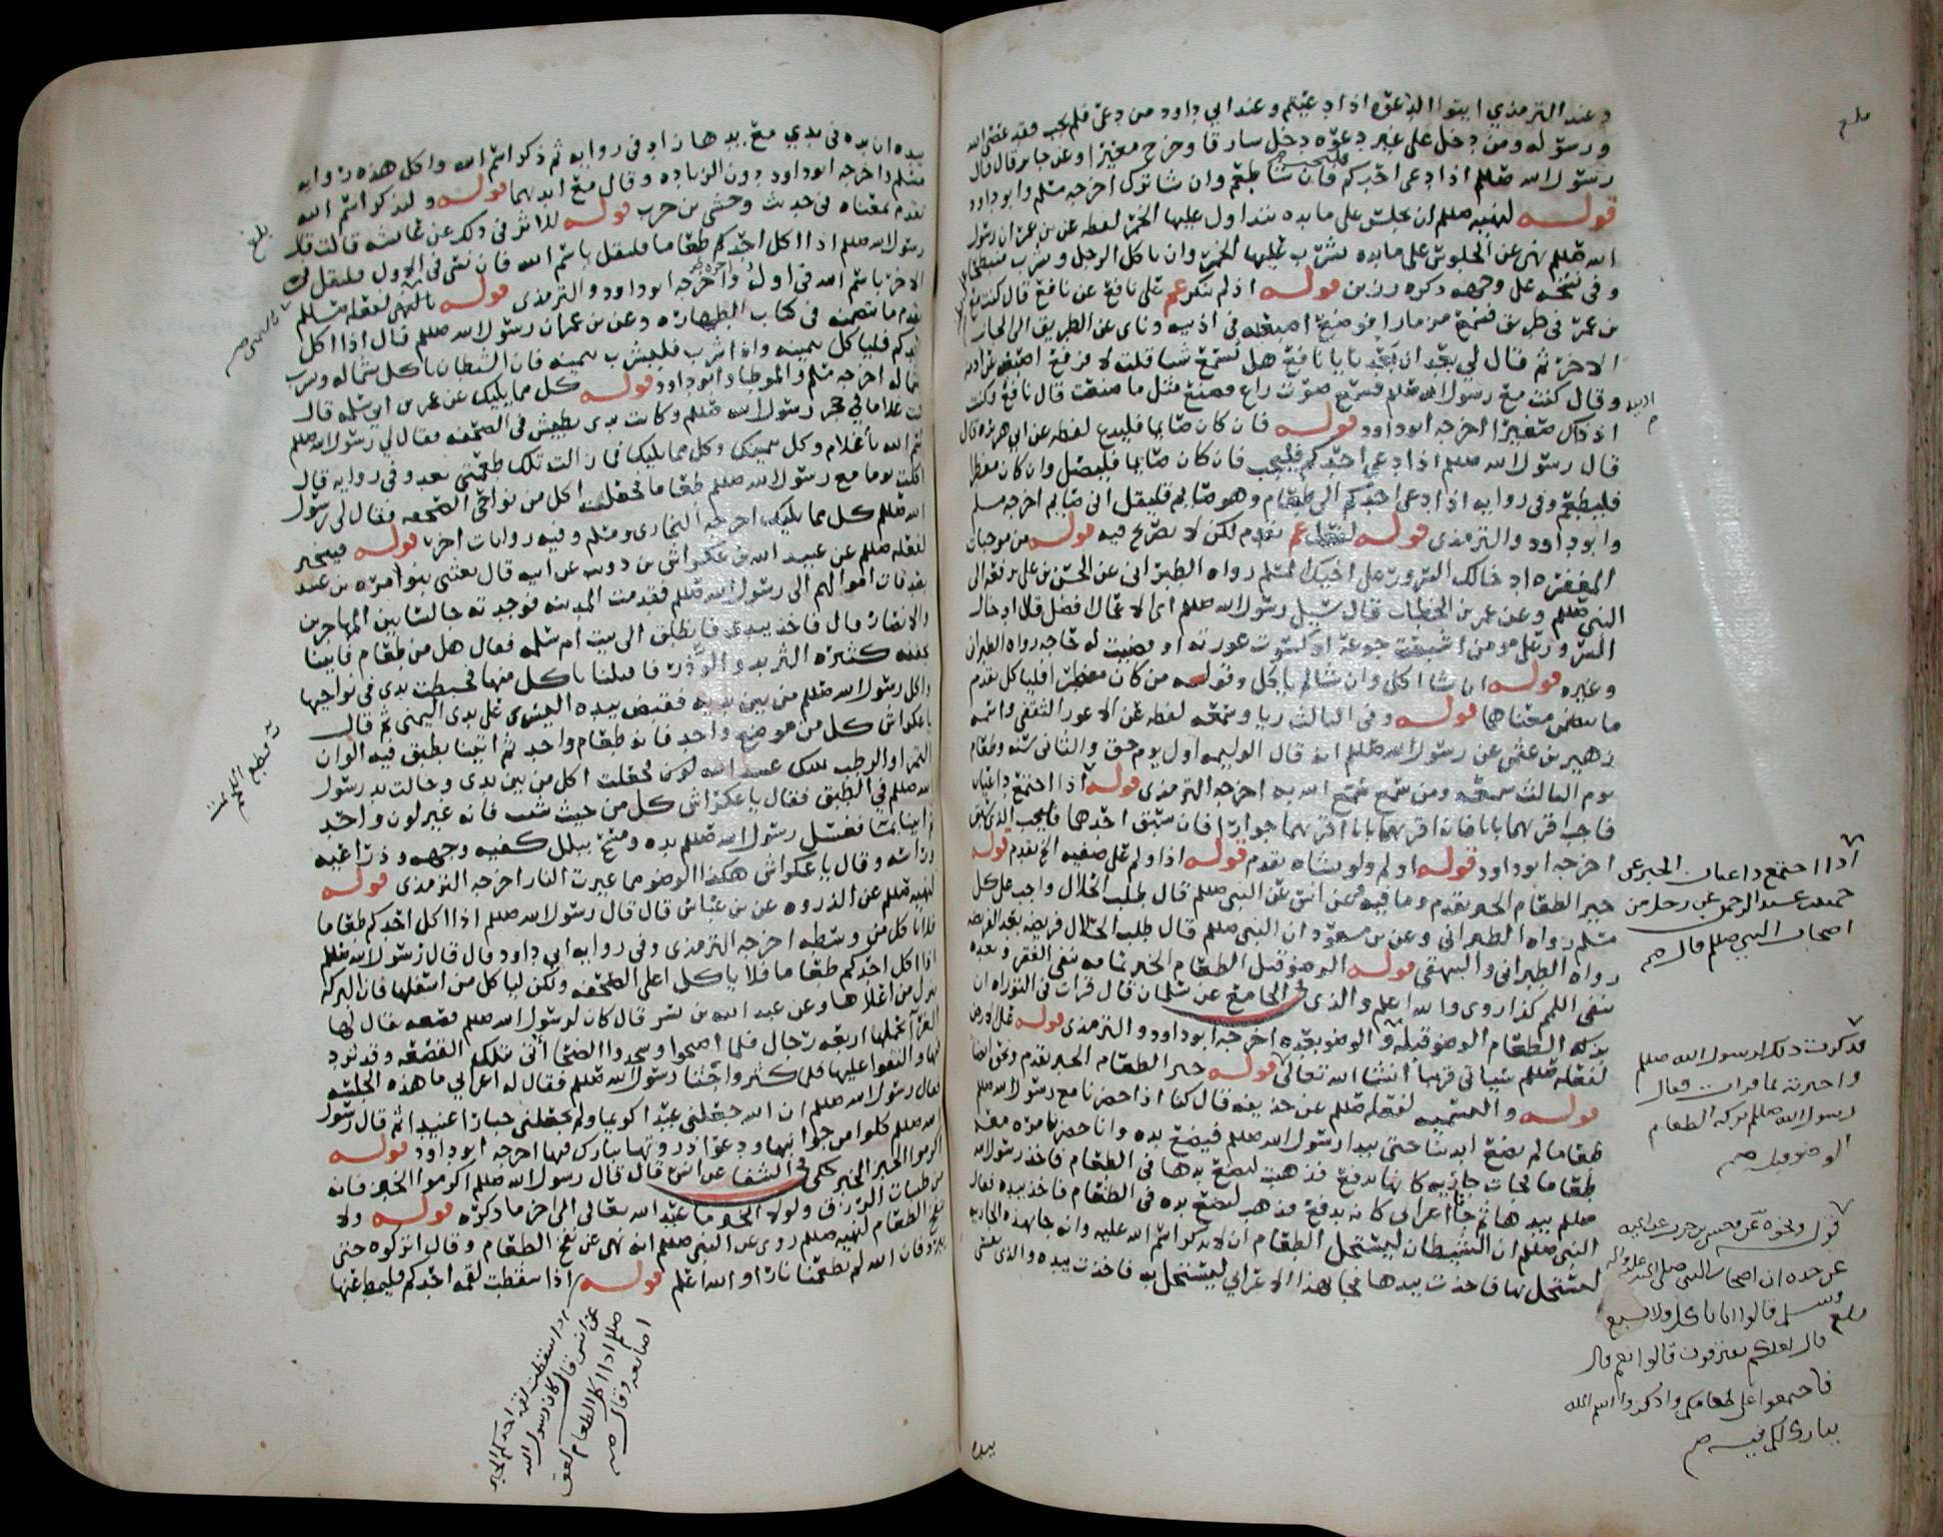 وعند الترمذي ايتوا الدعوه اذا دعيتم وعند ابي داود من دعي فلم يجب فقد عصى الله
ورسوله ومن دخل على غير دعوه دخل سارقا وخرج مغيرا وعن جابر قال قال
رسول الله صللم اذا دعي احدكم فليجب فان شا طعم وان شا ترك اخرجه مسلم وابو داود
قوله لنهيه صللم ان يجلس على مايده يتداول عليها الخمر لفظه عن بن عمر ان رسول
الله صللم نهى عن الجلوس على مايده يشرب عليها الخمر وان ياكل الرجل وهو منبطح
وفي نسخه على وجهه ذكره رزين قوله اذ لم ينكر عم على نافع عن نافع قال كنت مع
بن عمر في طريق فسمع مزمارا فوضع اصبعيه في اذنيه وناى عن الطريق الى الجانب
الاخر ثم قال لي بعد ان بعد يا نافع هل تسمع شيا قلت لا فرفع اصبعيه من اذنيه
وقال كنت مع رسول الله صللم فسمع صوت راع فصنع مثل ما صنعت قال نافع وكنت
اذ ذاك صغيرا اخرجه ابو داود قوله فان كان صايما فليدع لفظه عن ابي هريره قال
قال رسول الله صللم اذا دعي احدكم فليجب فان كان صايما فليصل وان كان مفطرا
فليطعم وفي روايه اذا دعي احدكم الى طعام وهو صايم فليقل اني صايم اخرجه مسلم
وابو داود والترمذي قوله لفعله عم تقدم لكن لا تصريح فيه قوله من موجبات
المغفره ادخالك السرور على اخيك المسلم رواه الطبراني عن الحسن بن علي يرفعه الى
النبي صللم وعن عمر بن الخطاب قال سيل رسول الله صللم اي الاعمال افضل قال ادخال
السرور على مومن اشبعت جوعته او كسوت عورته او قضيت له حاجه رواه الطبراني
وغيره قوله ان شا اكل وان شا لم ياكل وقوله من كان مفطرا فلياكل تقدم
ما يتضمن معناهما قوله وفي الثالث ريا وسمعه لفظه عن الاعور الثقفي واسمه
زهير بن عثمن عن رسول الله صللم انه قال الوليمه اول يوم حق والثاني سنه وطعام
يوم الثالث سمعه ومن سمع سمع الله به اخرجه الترمذي قوله اذا اجتمع داعيان
فاجب اقربهما بابا فان اقربهما بابا اقربهما جوارا فان سبق احدهما فاجب الذي سبق
اخرجه ابو داود قوله اولم ولو بشاه تقدم قوله اذ اولم على صفيه الخ تقدم قوله
خير الطعام الخبر تقدم وما فيه عن انس عن النبي صللم قال طلب الحلال واجب على كل
مسلم رواه الطبراني وعن بن مسعود ان النبي صللم قال طلب الحلال فريضه بعد الفريضه
رواه الطبراني والبيهقي قوله الوضو قبل الطعام الخبر تمامه ينفي الفقر وبعده
ينفي اللمم كذا روي والله اعلم والذي في الجامع عن سلمان قال قرات في التوراه ان
بركه الطعام الوضو قبله والوضو بعده اخرجه ابو داود والترمذي قوله
لفعله صللم سياتي قريبا انشا الله تعالى قوله خير الطعام الخبر تقدم
قوله والتسميه لفعله صللم عن حذيفه قال كنا اذا حضرنا مع رسول الله صللم
طعاما لم نضع ايدينا حتى يبدا رسول الله صللم فيضع يده وانا حضرنا مره معه
طعاما فجات جاريه كانها تدفع فذهبت لتضع يدها في الطعام فاخذ رسول الله
صللم بيدها ثم جا اعرابي كانه يدفع فذهب ليضع يده في الطعام فاخذ بيده فقال
النبي صللم ان الشيطان ليستحل الطعام ان لا يذكر اسم الله عليه وانه جا بهذه الجاريه
ليستحل بها فاخذت بيدها فجا بهذا الاعرابي ليستحل به فاخذت بيده والذي نفسي
بيده
اذنيه
اذا اجتمع داعيان الخبر عن
حميد بن عبد الرحمن عن رجل من
اصحاب النبي صللم قال صح
فذكرت ذلك لرسول الله صللم
واخبرته بما قرات فقال
رسول الله صللم بركه الطعام
الوضو قبله صح
عن جده ان اصحاب النبي صلى الله عليه واله
وسلم قالوا انا ناكل ولا نشبع
قال لعلكم تفترقون قالوا نعم قال
فاجتمعوا على طعامكم واذكروا اسم الله
يبارك لكم فيه صح
بيده ان يده في يدي مع يدها زاد في روايه ثم ذكر اسم الله واكل هذه روايه
مسلم واخرجه ابو داود بدون الزياده وقال مع ايديهما قوله وليذكر اسم الله
تقدم معناه في حديث وحشي بن حرب قوله للاثر في ذلك عن عايشه قالت قال
رسول الله صللم اذا اكل احدكم طعاما فليقل باسم الله فان نسي في الاول فليقل في
الاخر باسم الله في اوله واخره اخرجه ابو داود والترمذي قوله لفعله صللم
تقدم ما تضمنه في كتاب الطهاره وعن بن عمر ان رسول الله صللم قال اذا اكل
احدكم فلياكل بيمينه واذا شرب فليشرب بيمينه فان الشيطان ياكل بشماله ويشرب
بشماله اخرجه مسلم والموطا وابو داود قوله كل مما يليك عن عمر بن ابي سلمه قال
كنت غلاما في حجر رسول الله صللم وكانت يدي تطيش في الصحفه فقال لي رسول الله صللم
سم الله يا غلام وكل بيمينك وكل مما يليك فما زالت تلك طعمتي بعد وفي روايه قال
اكلت يوما مع رسول الله صللم طعاما فجعلت اكل من نواحي الصحفه فقال لي رسول
الله صللم كل مما يليك اخرجه البخاري ومسلم وفيه روايات اخر قوله فيتخير
لفعله صللم عن عبيد الله بن عكراش بن ذويب عن ابيه قال بعثني بنو مره بن عبيد
بصدقات اموالهم الى رسول الله صللم فقدمت المدينه فوجدته جالسا بين المهاجرين
والانصار قال فاخذ بيدي فانطلق الى بيت ام سلمه فقال هل من طعام فاتينا
بجفنه كثيره الثريد والوذر فاقبلنا ناكل منها فخبطت يدي في نواحيها
واكل رسول الله صللم من بين يديه فقبض بيده اليسرى على يدي اليمنى ثم قال
يا عكراش كل من موضع واحد فانه طعام واحد ثم اتينا بطبق فيه الوان
التمر او الرطب شك عبيد الله فجعلت اكل من بين يدي وجالت يد رسول
الله صللم في الطبق فقال يا عكراش كل من حيث شيت فانه غير لون واحد
ثم اتينا بما فغسل رسول الله صللم يده ومسح ببلل كفيه وجهه وذراعيه
وراسه وقال يا عكراش هكذا الوضو مما غيرت النار اخرجه الترمذي قوله
لنهيه صللم عن الذروه عن بن عباس قال قال رسول الله صللم اذا اكل احدكم طعاما
فلا ياكل من وسطه اخرجه الترمذي وفي روايه ابي داود قال قال رسول الله صللم
اذا اكل احدكم طعاما فلا ياكل اعلى الصحفه ولكن لياكل من اسفلها فان البركه
تنزل من اعلاها وعن عبد الله بن بسر قال كان لرسول الله صللم قصعه يقال لها
الغرا يحملها اربعه رجال فلما اصبحوا وسجدوا الضحى اتي بتلك القصعه وقد ثرد
فيها والتفوا عليها فلما كثروا جثا رسول الله صللم فقال له اعرابي ما هذه الجلسه
فقال رسول الله صللم ان الله جعلني عبدا كريما ولم يجعلني جبارا عنيدا ثم قال رسول
الله صللم كلوا من جوانبها ودعوا ذروتها يبارك فيها اخرجه ابو داود قوله
اكرموا الخبز الخبر حكى في الشفا عن انس قال قال رسول الله صللم اكرموا الخبز فانه
من طيبات الرزق ولولا الخبز ما عبد الله تعالى الى اخر ما ذكره قوله ولا
ينفخ الطعام لنهيه صللم روي عن النبي صللم انه نهى عن نفخ الطعام وقال اتركوه حتى
يبرد فان الله لم يطعمنا نارا والله اعلم قوله اذا سقطت لقمه احدكم فليمط عنها
بلغ
اذا سقطت لقمه احدكم الخبر
عن انس قال كان رسول الله
صللم اذا اكل الطعام لعق
اصابعه وقال صح